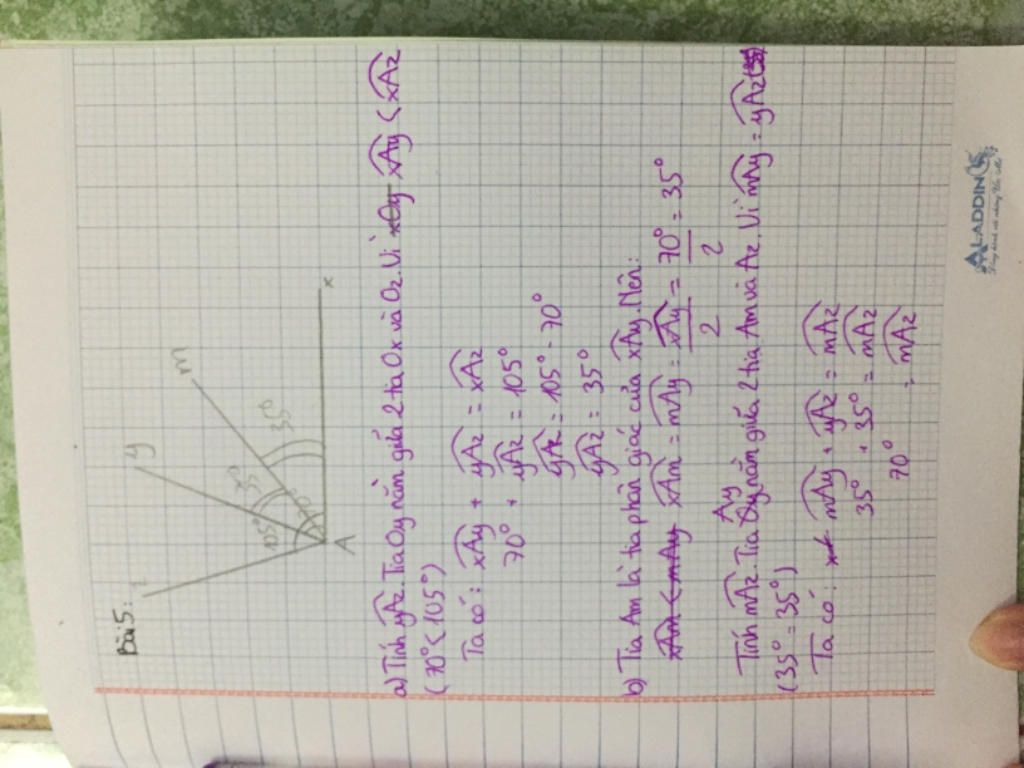 Bài 5:
z
y
m
105°
35°
35°
70°
A
x
a) Tính yAz. Tia Oy nằm giữa 2 tia Ox và Oz. Vì xOy xAy < xAz
(70° < 105°)
Ta có: xAy + yAz = xAz
70° + yAz = 105°
yAz = 105° - 70°
yAz = 35°
b) Tia Am là tia phân giác của xAy. Nên:
xAm < mAy xAm = mAy = xAy/2 = 70°/2 = 35°
Tính mAz. Tia Oy Ay nằm giữa 2 tia Am và Az. Vì mAy = yAz
(35° = 35°)
Ta có: mAy + yAz = mAz
35° + 35° = mAz
70° = mAz
ALADDIN